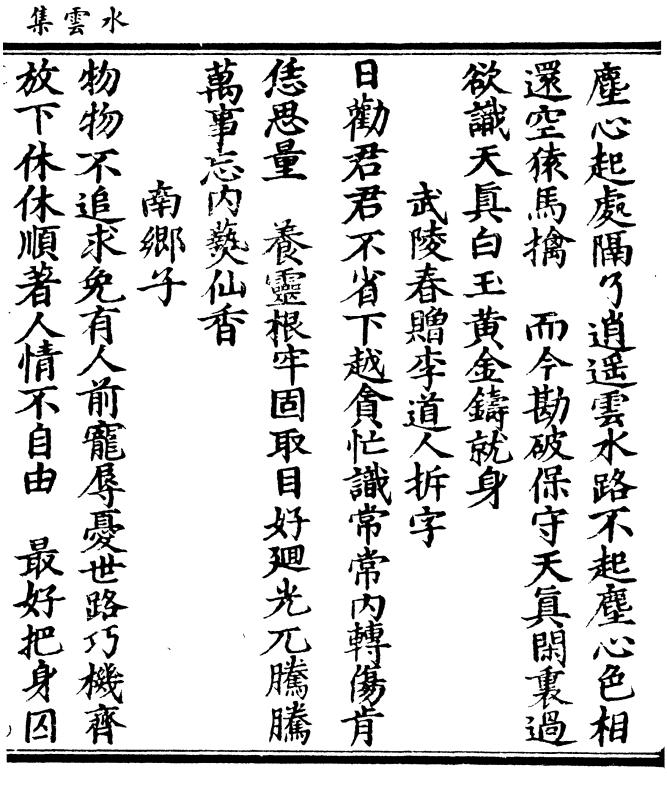 水雲集
塵心起處隔了逍遥雲水路不起塵心色相
還空猿馬擒　而今勘破保守天真閑裏過
欲識天真白玉黄金鑄就身
武陵春贈李道人拆字
日勸君君不省下越貪忙識常常内轉傷肯
恁思量　養靈根牢固取目好廻光兀騰騰
萬事忘内爇仙香
南鄉子
物物不追求免有人前寵辱憂世路巧機齊
放下休休順著人情不自由　最好把身囚